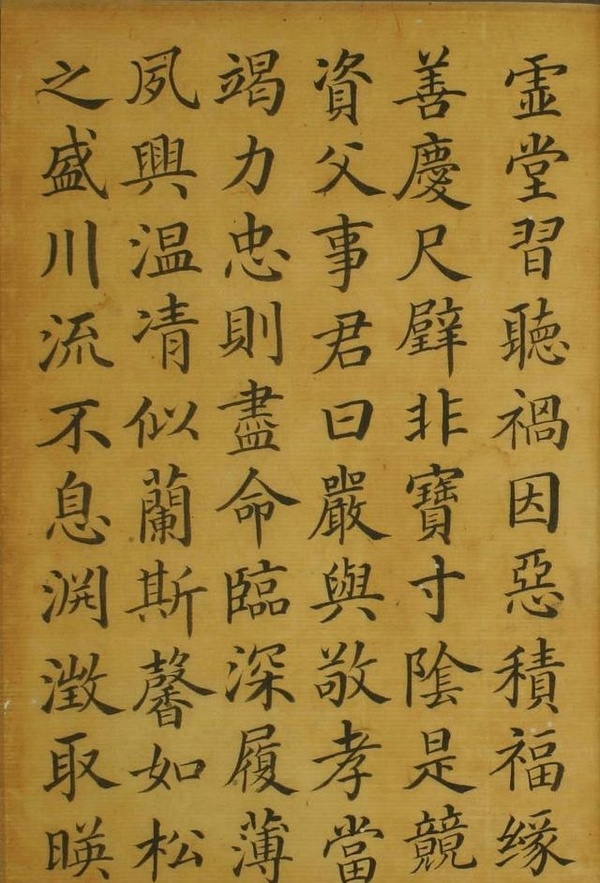 霊堂習聽禍因惡積福緣
善慶尺璧非寶寸陰是競
資父事君曰嚴與敬孝當
竭力忠則盡命臨深履薄
夙興温凊似蘭斯馨如松
之盛川流不息渕澂取暎